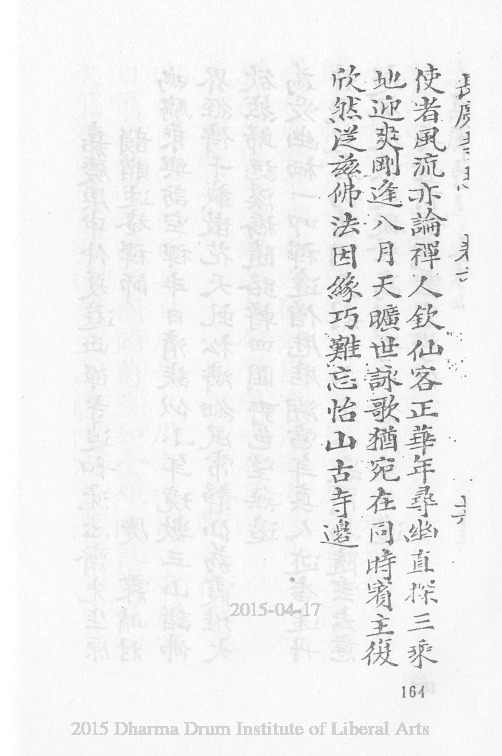 長慶寺志 卷六 十六
使者風流亦論禪人欽仙客正華年尋幽直探三乘
地迎爽剛逢八月天曠世詠歌猶宛在同時賓主復
欣然從茲佛法因緣巧難忘怡山古寺邊
2015-04-17
164
2015 Dharma Drum Institute of Liberal Arts